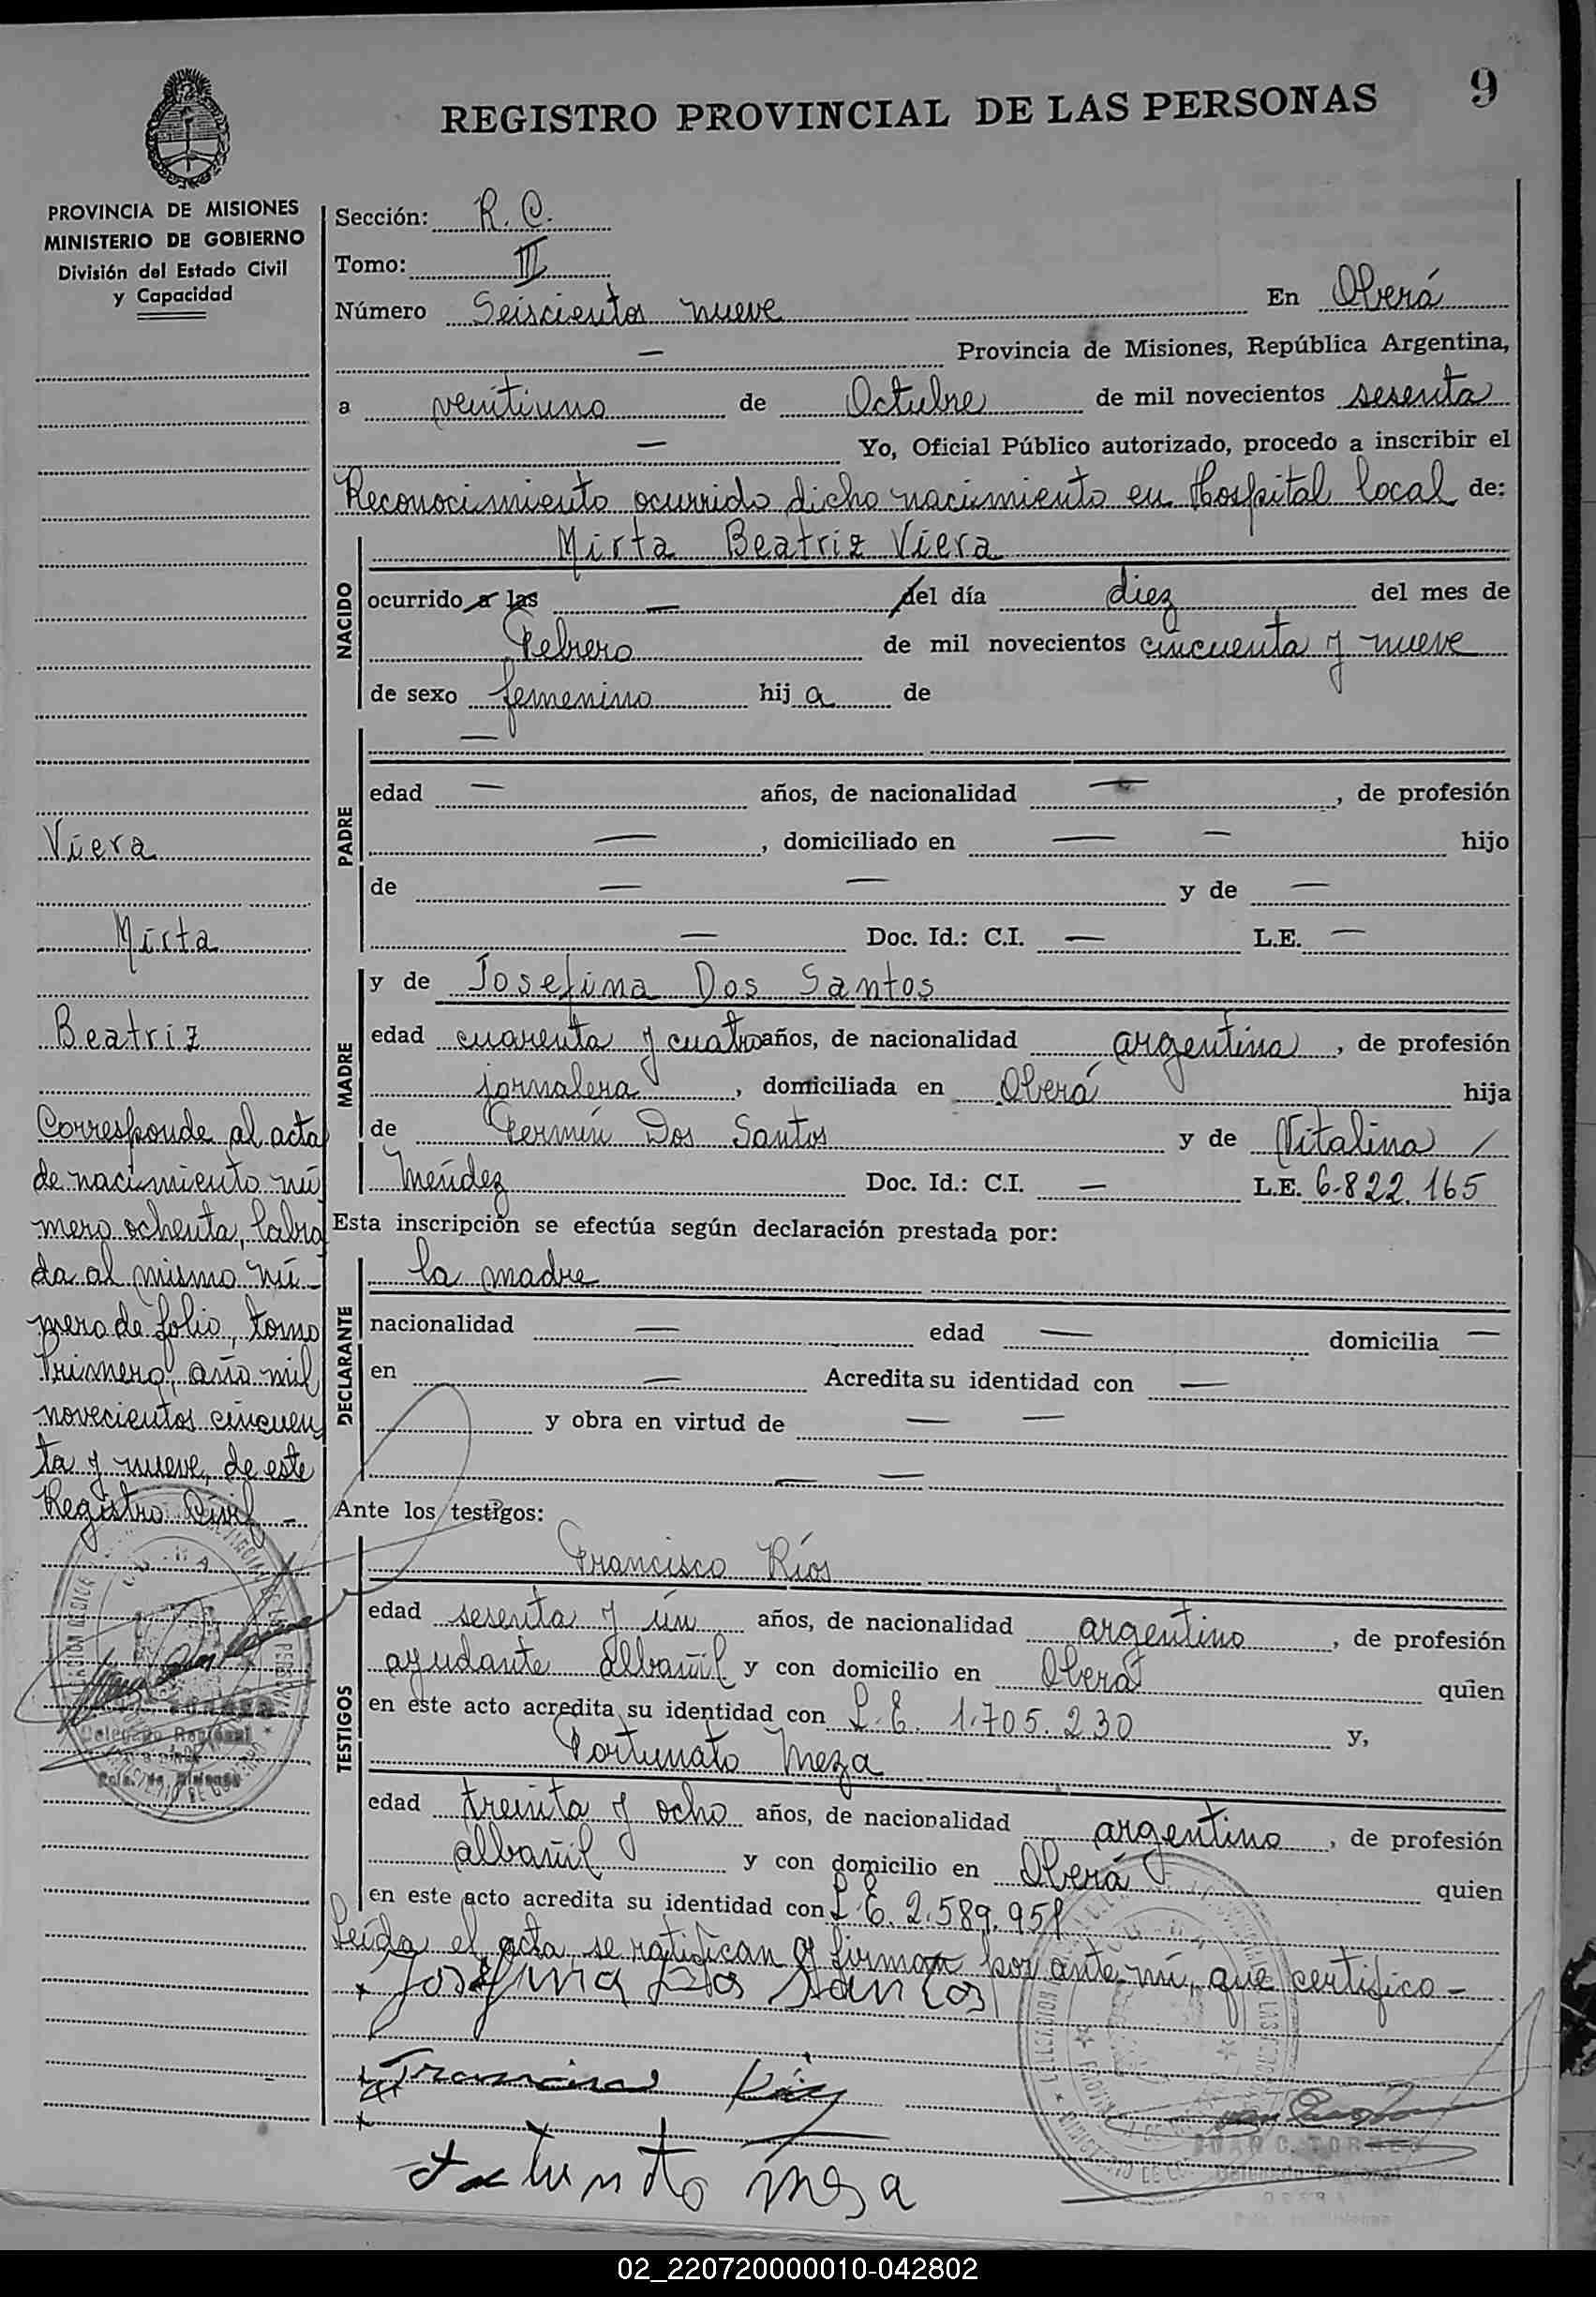 REGISTRO PROVINCIAL DE LAS PERSONAS 9
PROVINCIA DE MISIONES
MINISTERIO DE GOBIERNO
División del Estado Civil
y Capacidad
Viera
Mirta
Beatriz
Corresponde al acta
de nacimiento nú
mero ochenta, labra
da al mismo nú-
mero de folio, tomo
Primero, año mil
novecientos cincuen
ta y nueve, de este
Registro Civil -
Delegado Regional
Sección: R. C.
Tomo: II
Número Seiscientos nueve En Oberá
— Provincia de Misiones, República Argentina,
a veintiuno de Octubre de mil novecientos sesenta
— Yo, Oficial Público autorizado, procedo a inscribir el
Reconocimiento ocurrido dicho nacimiento en Hospital local de:
NACIDO
Mirta Beatriz Viera
ocurrido a las — del día diez del mes de
Febrero de mil novecientos cincuenta y nueve
de sexo femenino hija de
PADRE
—
edad — años, de nacionalidad —, de profesión
—, domiciliado en — — hijo
de — — y de —
— Doc. Id.: C.I. — L.E. —
MADRE
y de Josefina Dos Santos
edad cuarenta y cuatro años, de nacionalidad argentina, de profesión
jornalera, domiciliada en Oberá hija
de Fermín Dos Santos y de Vitalina /
Méndez Doc. Id.: C.I. — L.E. 6.822.165
Esta inscripción se efectúa según declaración prestada por:
DECLARANTE
la madre
nacionalidad — edad — domicilia —
en — Acredita su identidad con —
y obra en virtud de — —
— —
Ante los testigos:
TESTIGOS
Francisco Ríos
edad sesenta y ún años, de nacionalidad argentino, de profesión
ayudante albañil y con domicilio en Oberá quien
en este acto acredita su identidad con L.E. 1.705.230 y,
Fortunato Meza
edad treinta y ocho años, de nacionalidad argentino, de profesión
albañil y con domicilio en Oberá quien
en este acto acredita su identidad con L.E. 2.589.951
Leída el acta se ratifican y firman por ante mí, que certifico -
Josefina Dos Santos
Francisco Ríos
JUAN C. TORRES
Delegado Regional
OBERA
meza
02_220720000010-042802